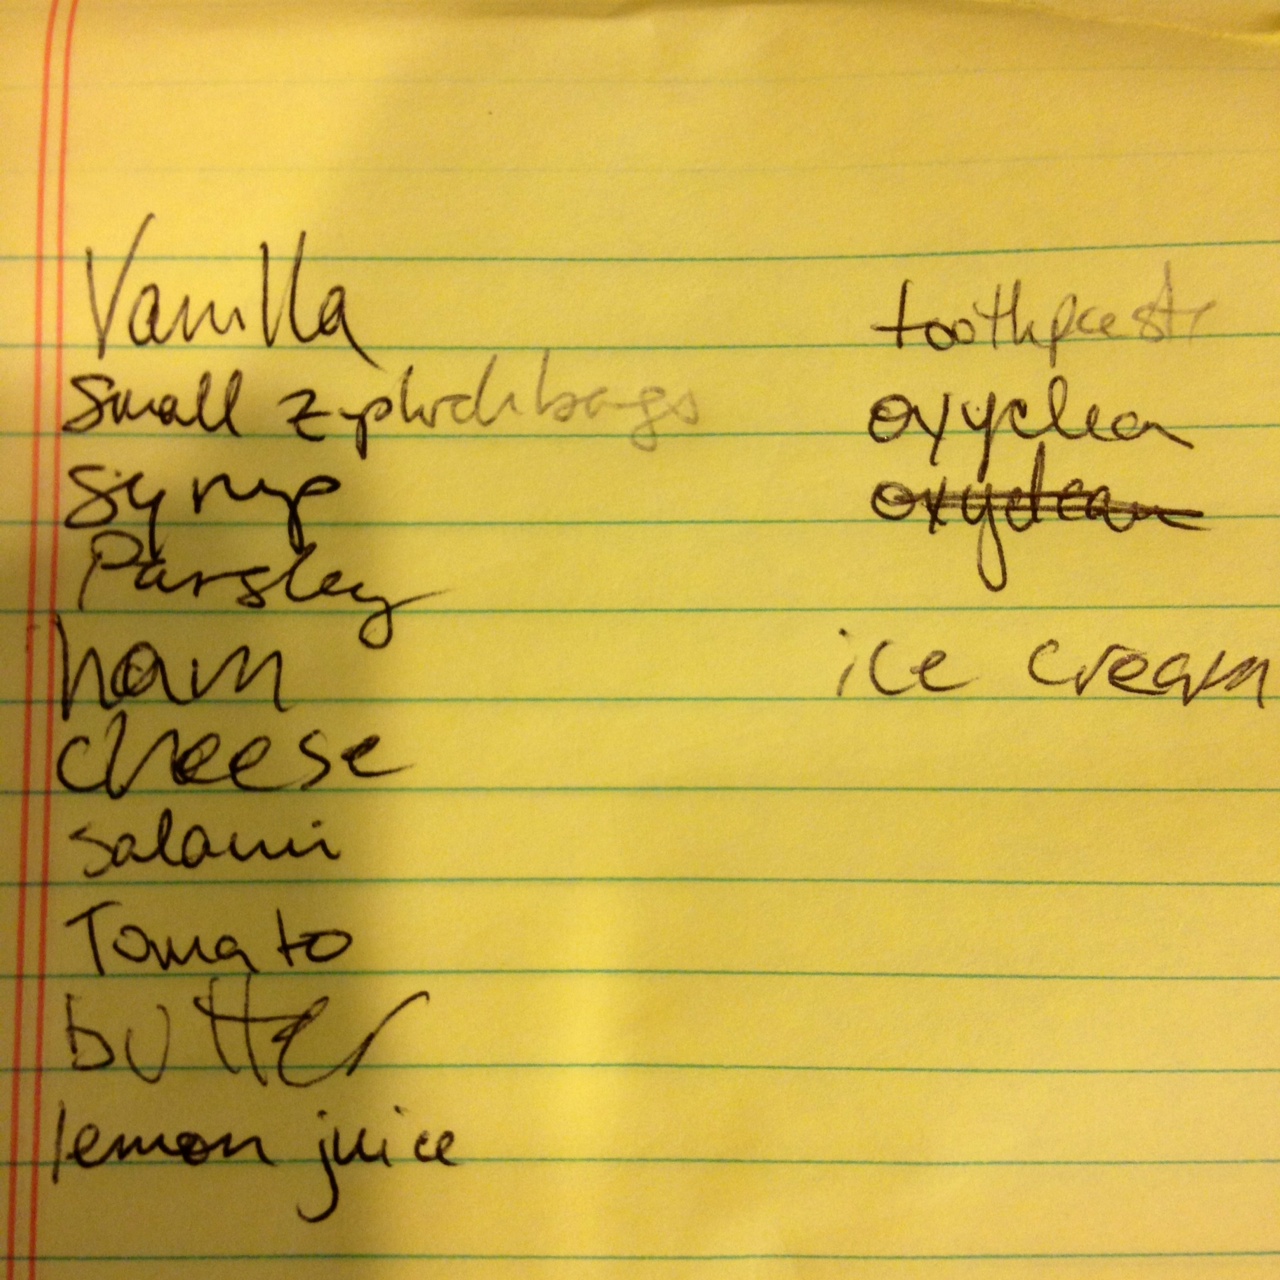 Vanilla
Small ziplock bags
Syrup
Parsley
ham
cheese
salami
Tomato
butter
lemon juice
toothpaste
oxyclean
oxyclean
ice cream